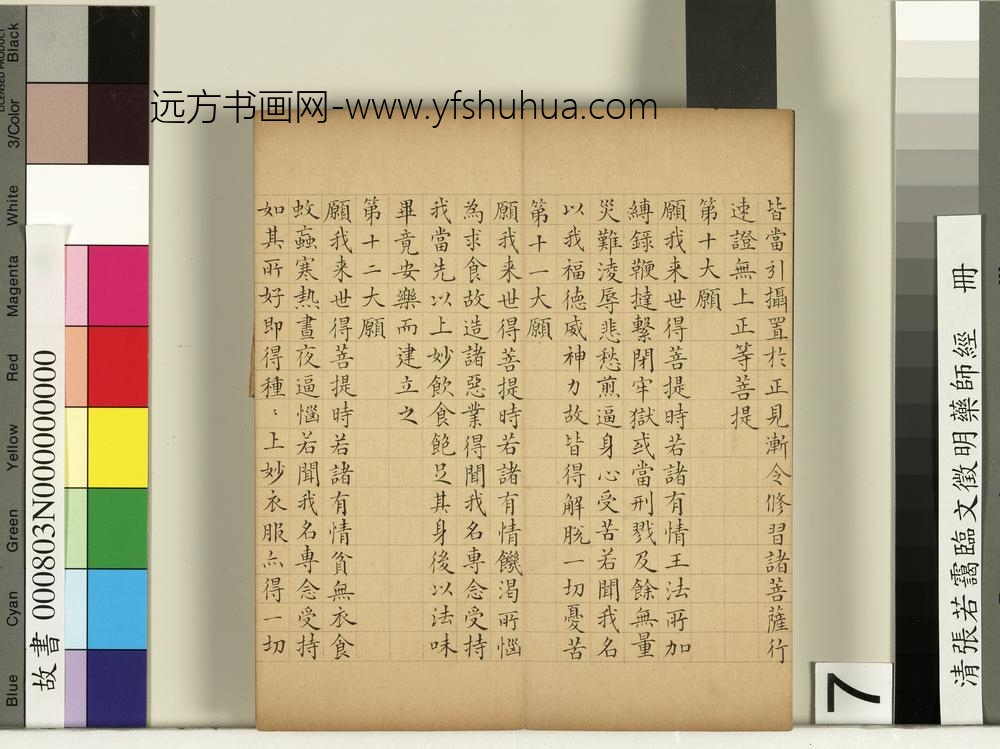 远方书画网-www.yfshuhua.com
皆當引攝置扵正見漸令修習諸菩薩行
速證無上正等菩提
第十大願
願我来世得菩提時若諸有情王法所加
縛錄鞭撻繫閉牢獄或當刑戮及餘無量
災難淩辱悲愁煎逼身心受苦若聞我名
以我福德威神力故皆得解脱一切憂苦
第十一大願
願我来世得菩提時若諸有情饑渴所惱
為求食故造諸惡業得聞我名專念受持
我當先以上妙飲食飽足其身後以法味
畢竟安樂而建立之
第十二大願
願我来世得菩提時若諸有情貧無衣食
蚊蝱寒熱晝夜逼惱若聞我名專念受持
如其所好即得種〻上妙衣服亦得一切
清張若靄臨文徵明藥師經 冊
故書 000803N000000000
7
LICENSED PRODUCT
Black
3/Color
White
Magenta
Red
Yellow
Green
Cyan
Blue